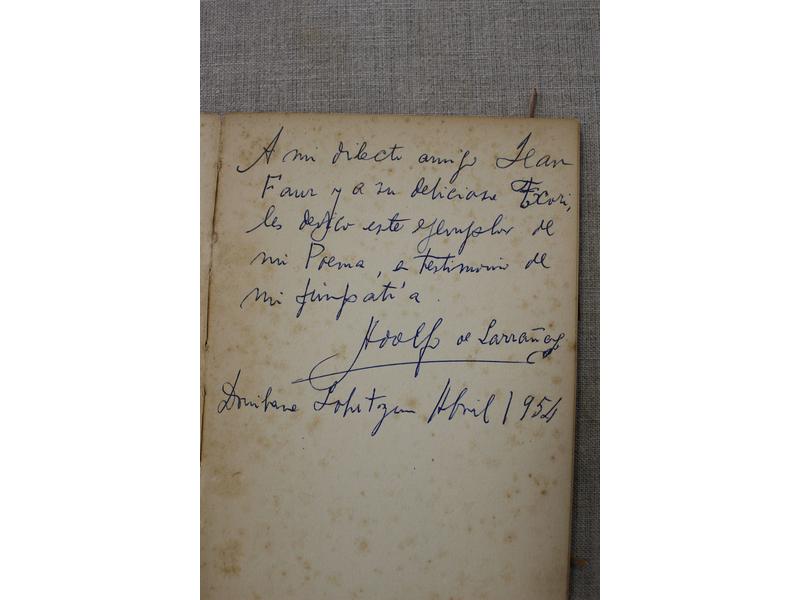 A mi dilecto amigo Jean
Faur y a su deliciosa Txori,
les dedico este ejemplar de
mi Poema, en testimonio de
mi simpatía.
Adolfo de Larrañaga
Donibane Lohitzun Abril 1954